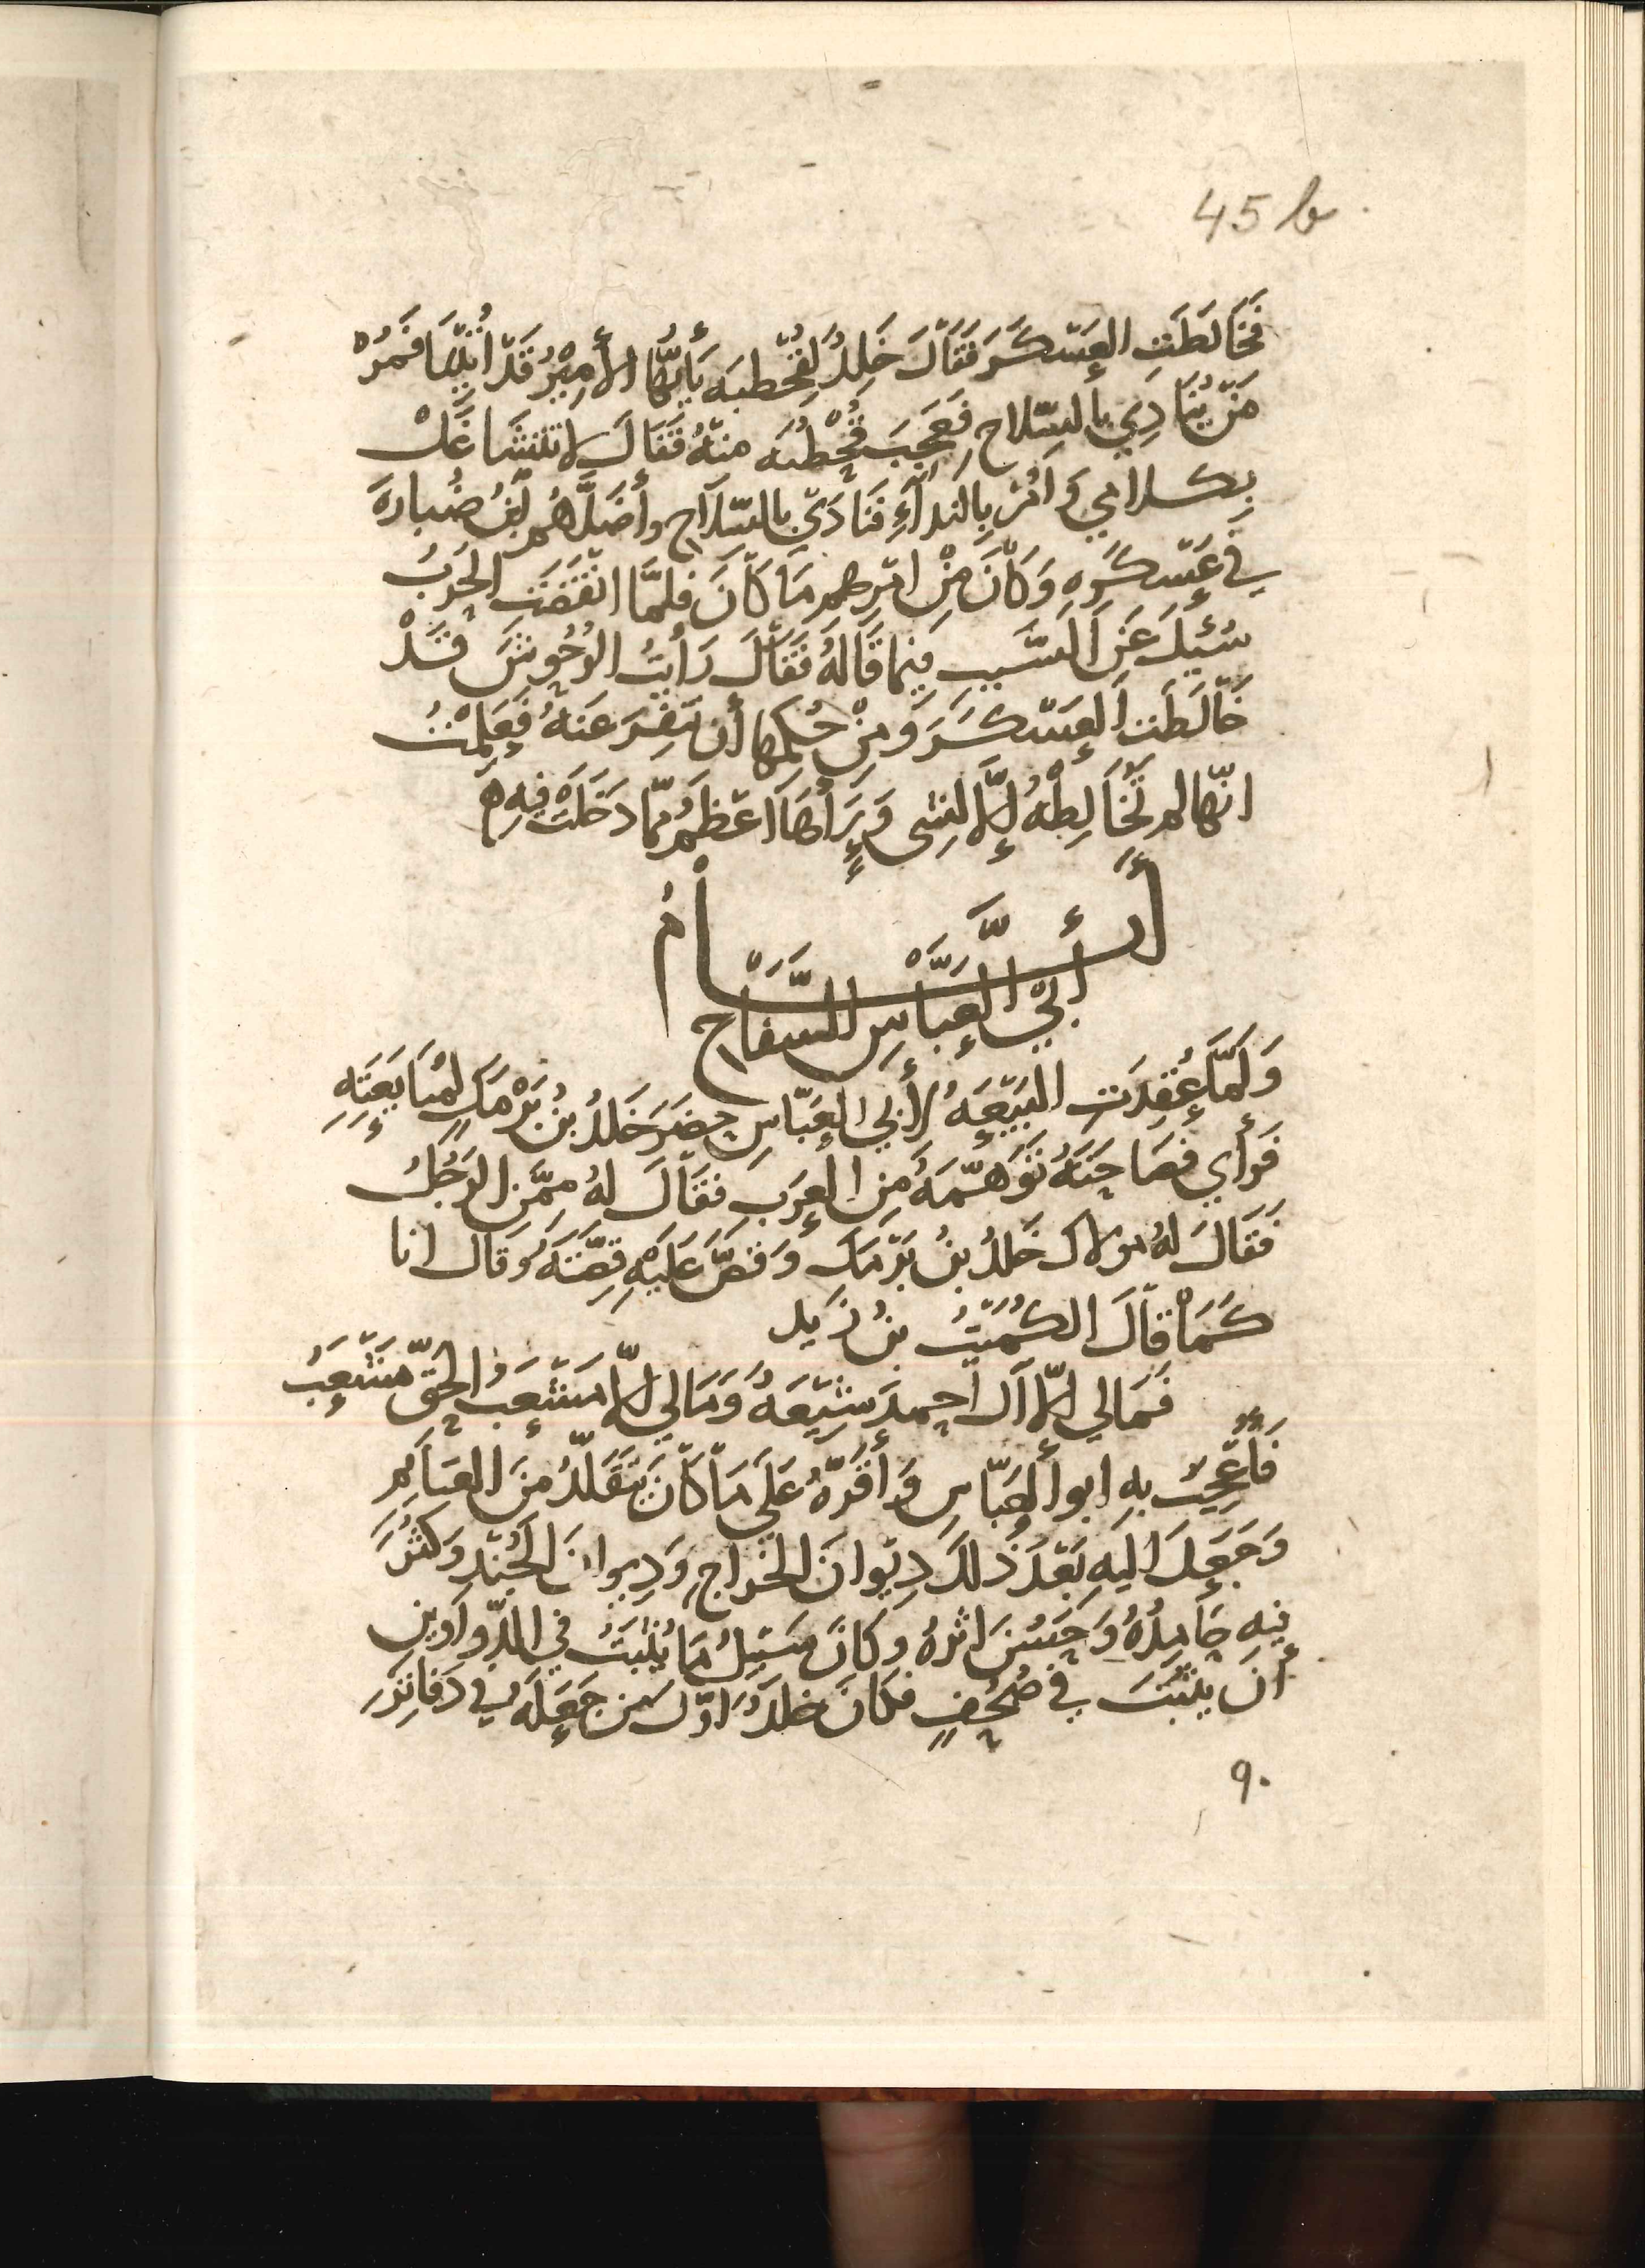 45 b
فَخَالَطَتِ العَسْكَرَ فَقَالَ خَلِدٌ لِقَحْطَبَه يَأَيُّهَا الأَمِيْرُ قَدْ أُتِيْنَا فَمُرْ
مَنْ يُنَادِي بِالسِّلاحِ فَعَجِبَ قَحْطَبَه مِنْهُ فَقَالَ لا تَتَشَاغَلْ
بِكلامِي وَأمُرْ بِالنِدآءِ فَنَادَي بِالسِّلَاحِ وأَضَلَّهُم ابْنُ ضُبارةَ
في عَسْكَرِهِ وَكَانَ مِنْ امْرِهِم مَا كَانَ فلمَّا انْقَضَتِ الحَرْبُ
سُئِلَ عَنِ السَّبَبِ فِيمَا قَالَهُ فَقَالَ رَأيْتُ الوُحُوشَ قَدْ
خَالَطَتِ العَسْكَرَ وَمِنْ حُكْمِها أن تَنفِرَ عَنهُ فَعَلِمْتُ
انّها لم تُخَالِطْهُ إِلَّا لِشيٍ وَرَأهَا اعْظَمُ مِمّا دَخَلَتْ فِيهِ ۞
أَيَّـــــــامُ
أبي العَبَّاسِ السَّفَاح
وَلَمَّا عُقِدَتِ البَيْعَةُ لأبي العَبّاسِ حَضَرَ خَلِدُ بنُ بَرْمَكٍ لِمُبَايَعَتِهِ
فَرَأي فَصَاحَتَهُ تَوَهَّمَهُ مِنَ العَرَبِ فقَالَ لهُ مِمَّنِ الرَجُلُ
فَقَالَ لهُ مولاك خَلِدُ بنُ بَرْمَكٍ وَقَصَّ عَلَيْهِ قِصَّتَهُ وَقال انا
كَمَا قالَ الكُمَيْتُ بنُ زَيد
فَمَالي إلّا آلَ أحمدَ شِيْعَةٌ وَمَالي إلّا مَشْعَبَ الحَقِّ مَشْعَبُ
فَأُعْجِبَ بهِ ابو العَبّاسِ وَأقَرَّهُ عَلَي مَا كَانَ يَتَقَلّدُ مِنَ الغَنَايمِ
وَجَعَلَ اليهِ بَعْدَ ذلكَ دِيْوانَ الخَراجِ وَدِيوانَ الجُنْدِ وَكَثُرَ
فيهِ حَامِدُهُ وَحَسُنَ اثَرهُ وكانَ سَبِيلُ مَا يُثْبَتُ في الدّواوينِ
أنْ يُثْبَتَ في صُحُفٍ فكَانَ خلدٌ اوّلَ مَن جَعَلَهُ في دَفاتِرَ
٩٠